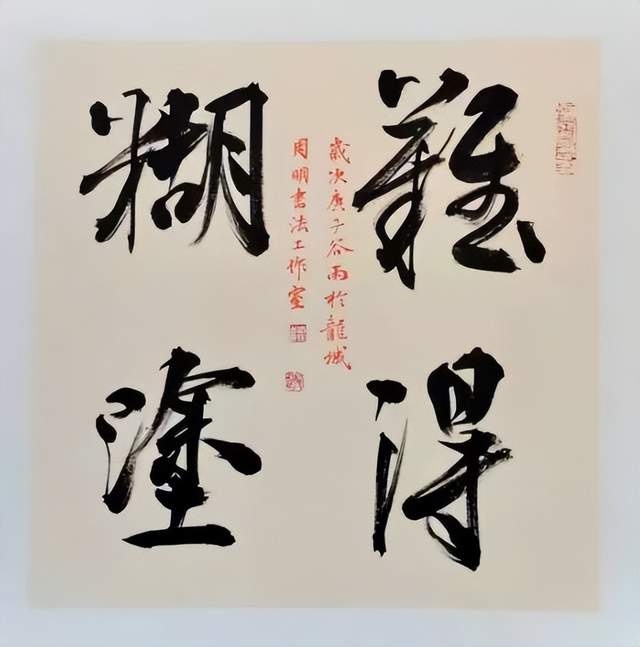 難得
糊塗
歲次庚子谷雨於龍城
周明書法工作室